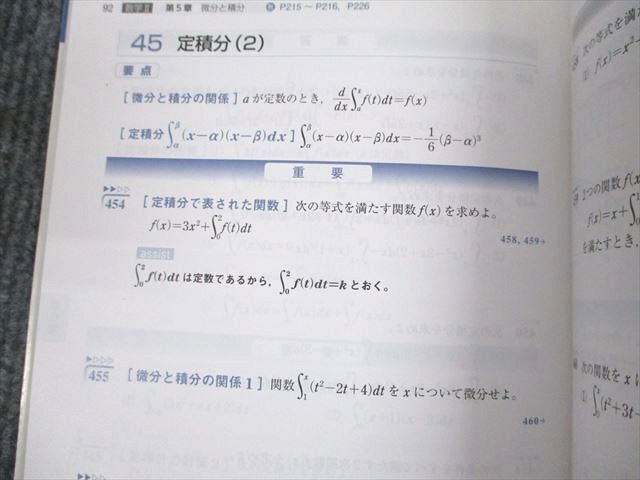 92 数学Ⅱ 第5章 微分と積分 P215～P216, P226
45 定積分(2)
要点
[微分と積分の関係] aが定数のとき, d/dx ∫_a^x f(t)dt=f(x)
[定積分∫_α^β (x-α)(x-β)dx] ∫_α^β (x-α)(x-β)dx=-1/6(β-α)³
重要
454 [定積分で表された関数] 次の等式を満たす関数 f(x) を求めよ。
f(x)=3x²+∫_0^2 f(t)dt
458, 459→
assist
∫_0^2 f(t)dt は定数であるから, ∫_0^2 f(t)dt=k とおく。
455 [微分と積分の関係1] 関数 ∫_1^x (t²-2t+4)dt を x について微分せよ。
460→
次の等式を満た
f(x)=x²-
2つの関数 f(x
f(x)=x+∫
を満たすとき,
次の関数を x に
(1) ∫(t²+3t-